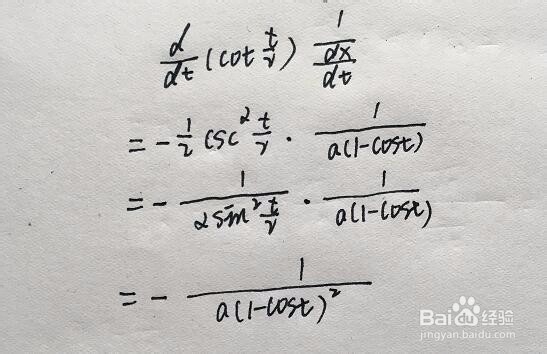 d/dt (cot t/2) 1/(dx/dt)
= - 1/2 csc² t/2 · 1/(a(1-cost))
= - 1/(2sin² t/2) · 1/(a(1-cost))
= - 1/(a(1-cost)²)
Bai du 经验
jingyan.baidu.com